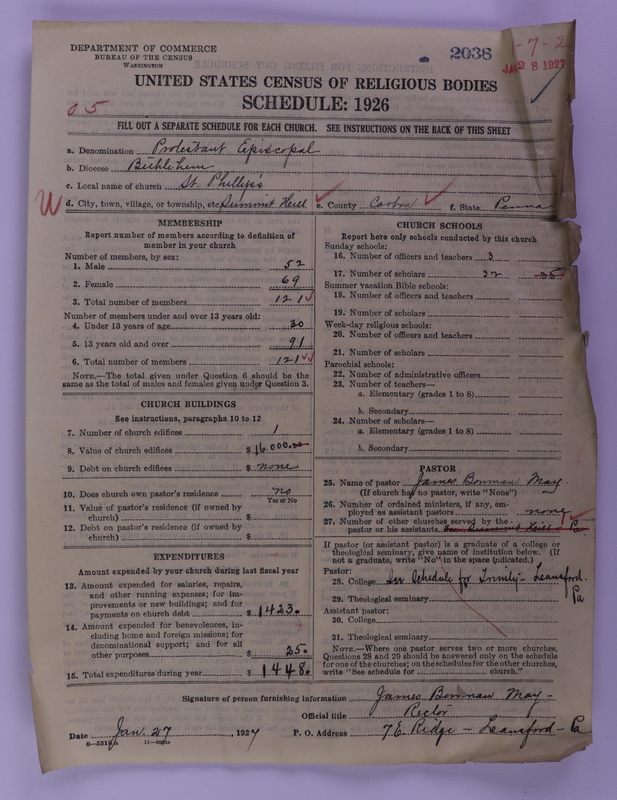 DEPARTMENT OF COMMERCE
BUREAU OF THE CENSUS
WASHINGTON
2038
1-7-2
JAN 28 1927
UNITED STATES CENSUS OF RELIGIOUS BODIES
SCHEDULE: 1926
05
FILL OUT A SEPARATE SCHEDULE FOR EACH CHURCH. SEE INSTRUCTIONS ON THE BACK OF THIS SHEET
a. Denomination Protestant Episcopal
b. Diocese Bethlehem
c. Local name of church St. Phillip's
W d. City, town, village, or township, etc. Summit Hill e. County Carbon f. State Penna
MEMBERSHIP
Report number of members according to definition of
member in your church
Number of members, by sex:
1. Male 52
2. Female 69
3. Total number of members 121
Number of members under and over 13 years old:
4. Under 13 years of age 30
5. 13 years old and over 91
6. Total number of members 121
NOTE.—The total given under Question 6 should be the
same as the total of males and females given under Question 3.
CHURCH BUILDINGS
See instructions, paragraphs 10 to 12
7. Number of church edifices 1
8. Value of church edifices $ 16,000.00
9. Debt on church edifices $ none
10. Does church own pastor's residence no
Yes or No
11. Value of pastor's residence (if owned by
church) $
12. Debt on pastor's residence (if owned by
church) $
EXPENDITURES
Amount expended by your church during last fiscal year
13. Amount expended for salaries, repairs,
and other running expenses; for im-
provements or new buildings; and for
payments on church debt $ 1423.
14. Amount expended for benevolences, in-
cluding home and foreign missions; for
denominational support; and for all
other purposes $ 25.
15. Total expenditures during year $ 1448.
CHURCH SCHOOLS
Report here only schools conducted by this church
Sunday schools:
16. Number of officers and teachers 3
17. Number of scholars 32 35
Summer vacation Bible schools:
18. Number of officers and teachers
19. Number of scholars
Week-day religious schools:
20. Number of officers and teachers
21. Number of scholars
Parochial schools:
22. Number of administrative officers
23. Number of teachers—
a. Elementary (grades 1 to 8)
b. Secondary
24. Number of scholars—
a. Elementary (grades 1 to 8)
b. Secondary
PASTOR
25. Name of pastor James Bowman May.
(If church has no pastor, write "None")
26. Number of ordained ministers, if any, em-
ployed as assistant pastors none
27. Number of other churches served by the
pastor or his assistants Summit Hill Pa
If pastor (or assistant pastor) is a graduate of a college or
theological seminary, give name of institution below. (If
not a graduate, write "No" in the space indicated.)
Pastor:
28. College See Schedule for Trinity - Lansford.
Pa
29. Theological seminary
Assistant pastor:
30. College
31. Theological seminary
NOTE.—Where one pastor serves two or more churches,
Questions 28 and 29 should be answered only on the schedule
for one of the churches; on the schedules for the other churches,
write "See schedule for church."
Signature of person furnishing information James Bowman May -
Official title Rector
Date Jan. 27, 1927 P. O. Address 7 E. Ridge - Lansford - Pa
8—5318A